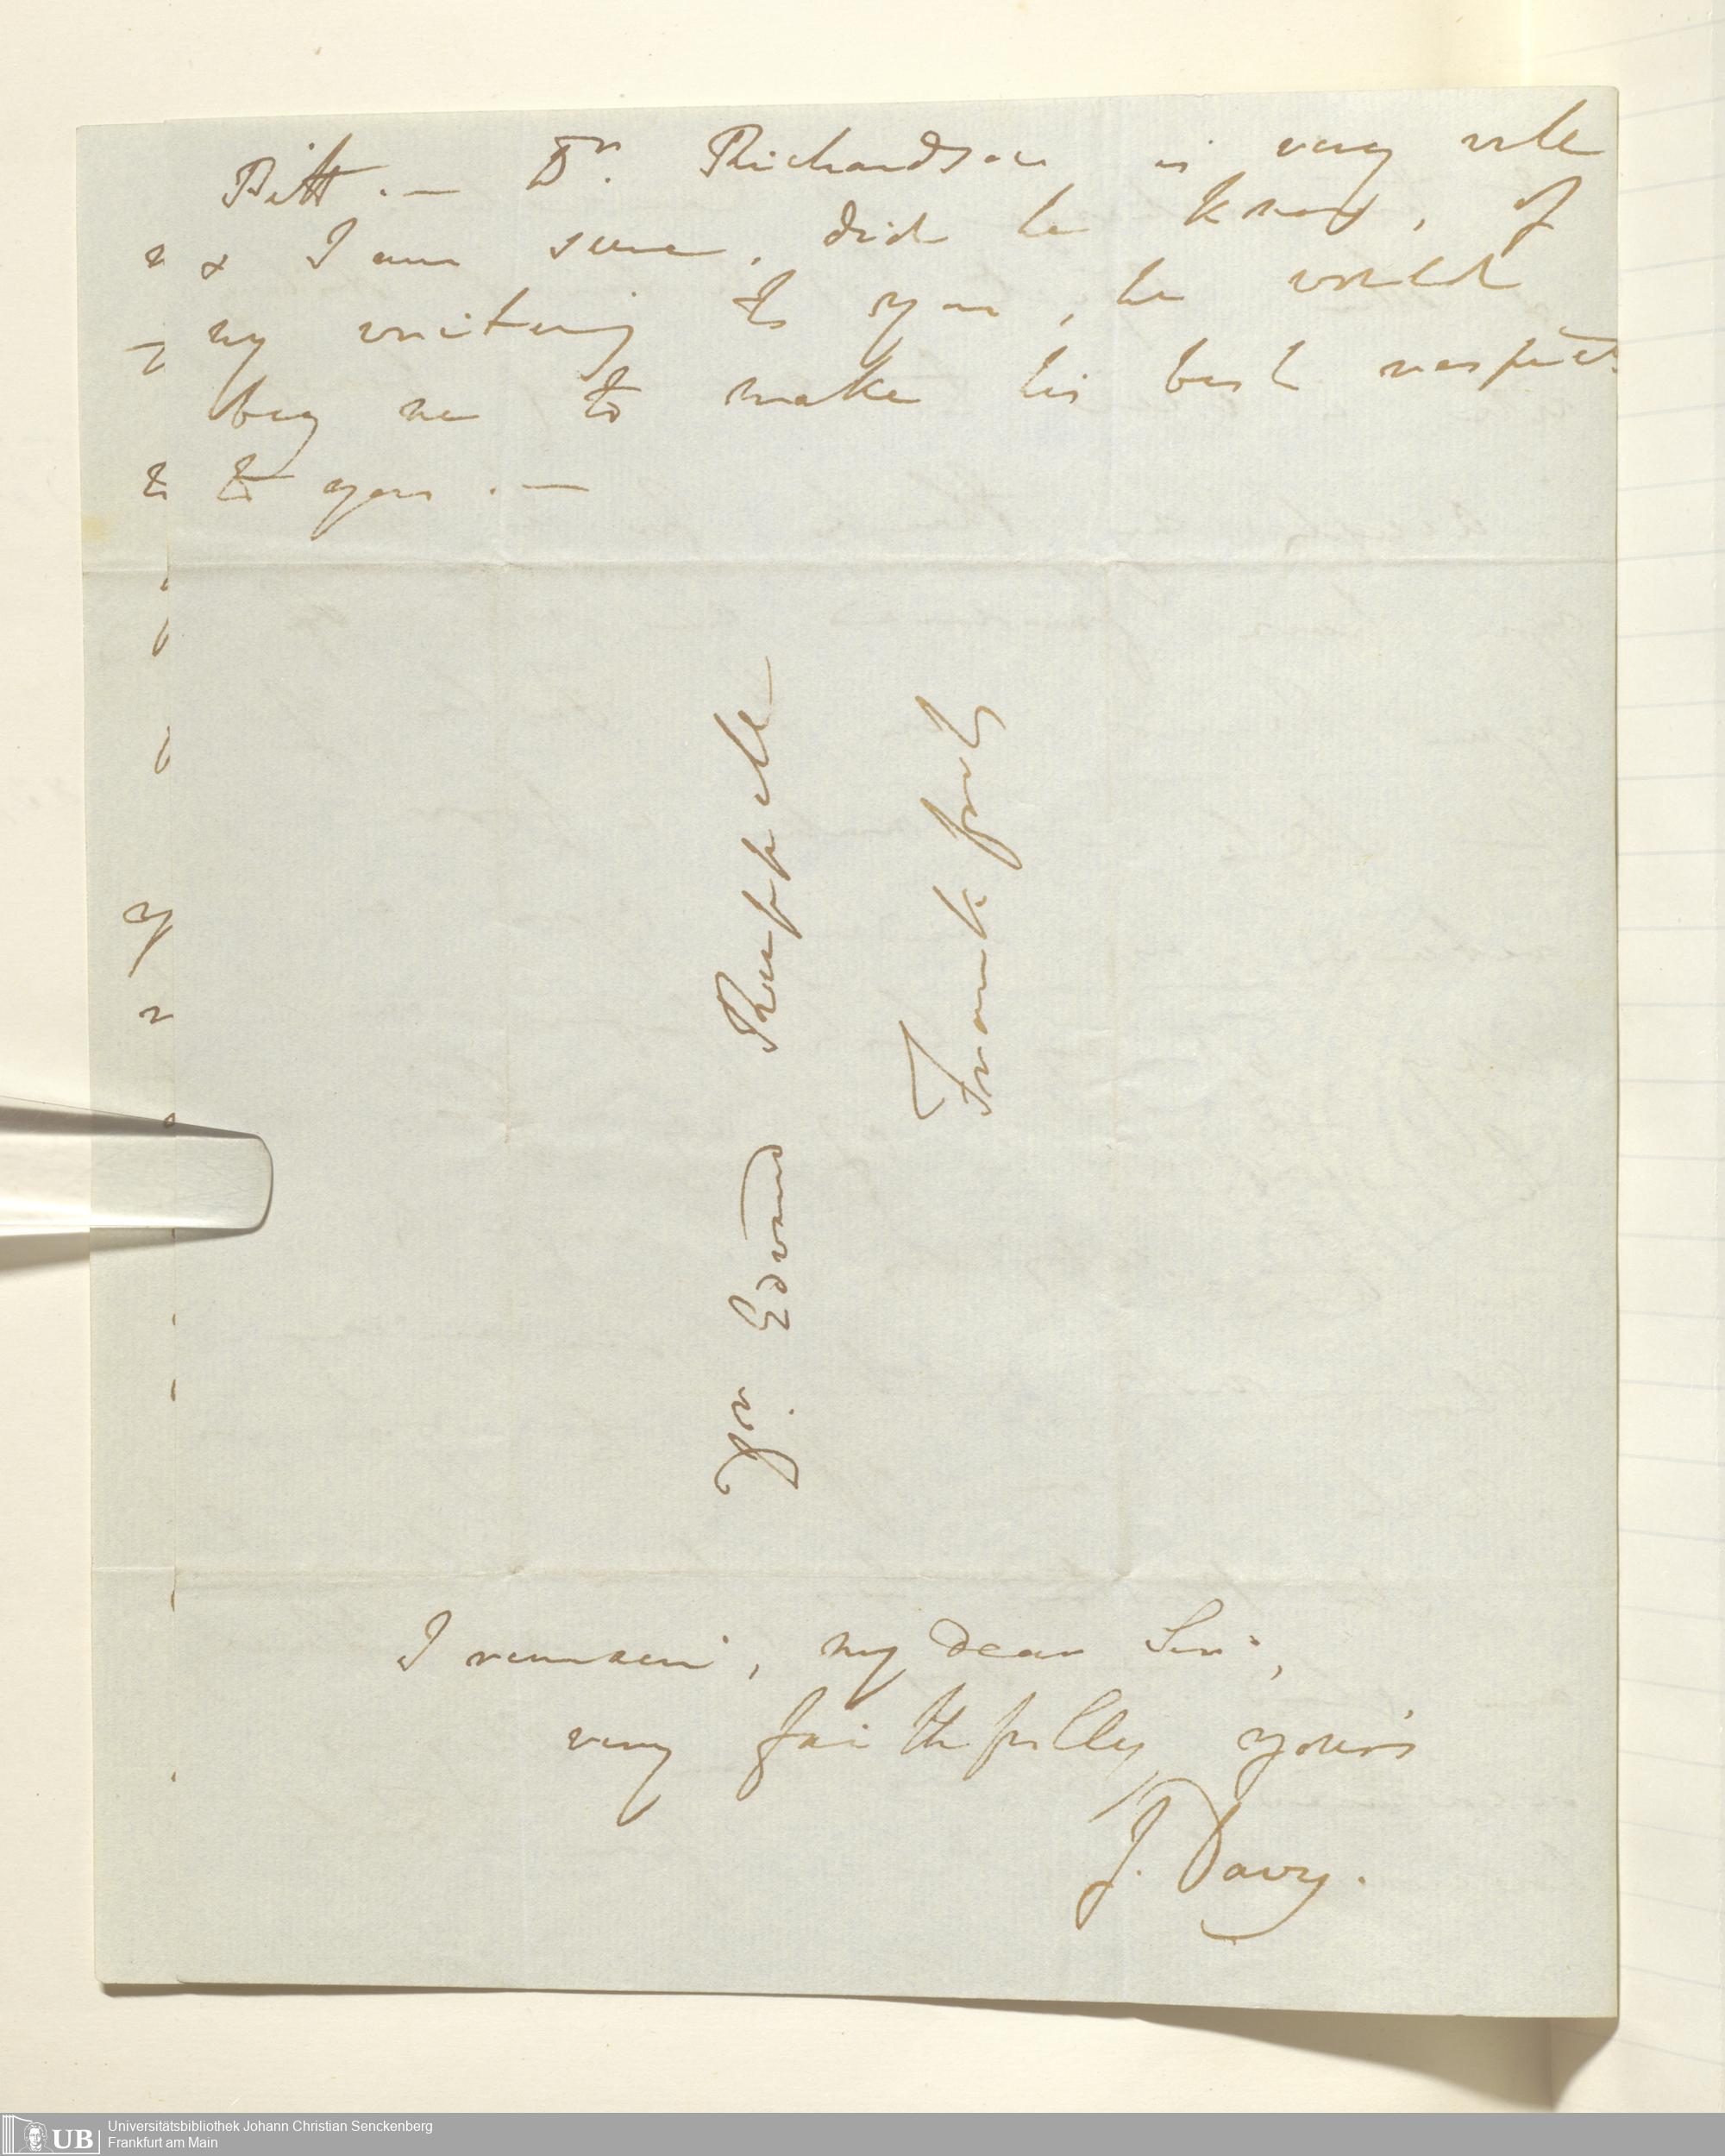 Pitt. — Dr. Richardson is very well
& I am sure, did he know, of
my writing to you, he would
beg me to make his best respects
to you. —
Dr. Edward Ruppell
Frankfort
I remain, my dear Sir,
very faithfully yours
J. Davy.
UB
Universitätsbibliothek Johann Christian Senckenberg
Frankfurt am Main